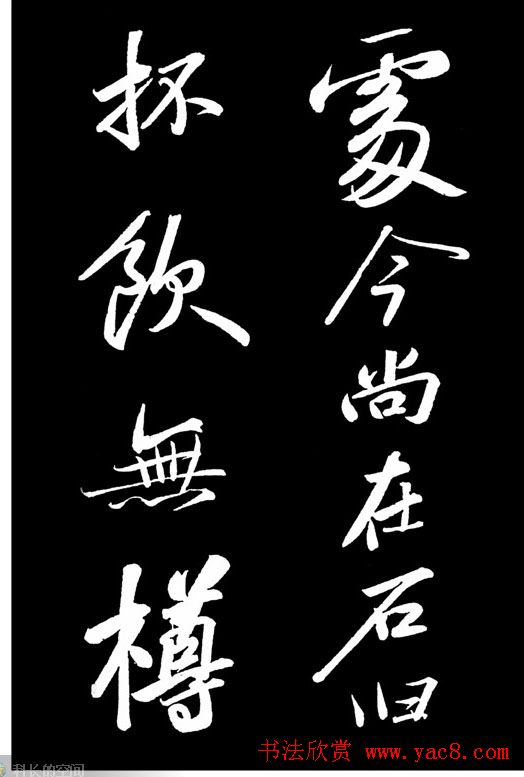 處今尚在石臼
抔飲無樽
书法欣赏 www.yac8.com
科长的空间